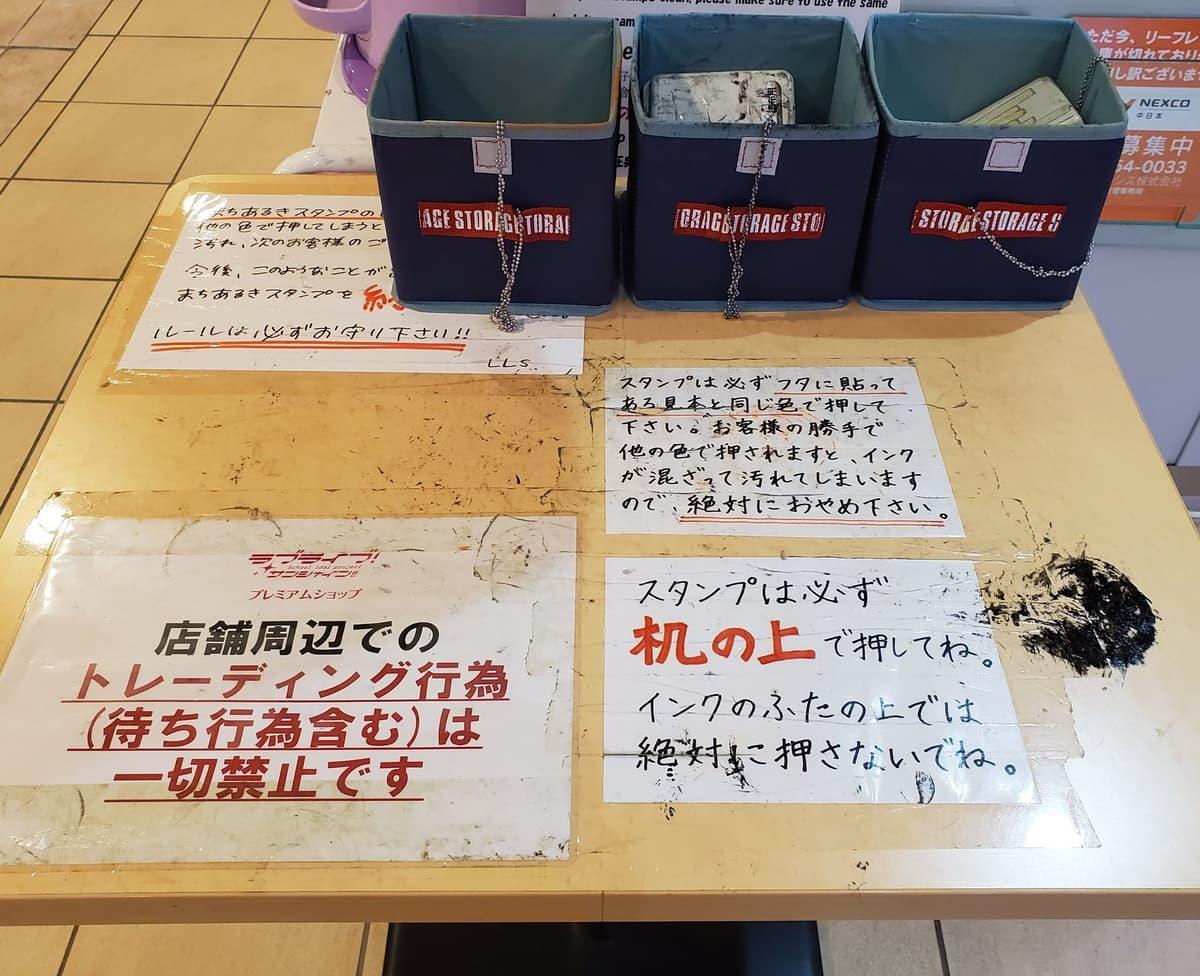 stamps clean, please make sure to use the same
ただ今、リーフレ
庫が切れており
し訳ございませ
NEXCO
中日本
募集中
54-0033
シス株式会社
AGE STORAGE STORAG
ORAGE STORAGE STO
STORAGE STORAGE S
まちあるきスタンプの
他の色で押してしまうと
汚れ、次のお客様のご
今後、このようなことが
まちあるきスタンプを
ルールは必ずお守り下さい!!
LLS
スタンプは必ずフタに貼って
ある見本と同じ色で押して
下さい。お客様の勝手で
他の色で押されますと、インク
が混ざって汚れてしまいます
ので、絶対におやめ下さい。
ラブライブ!
School idol project
サンシャイン!!
プレミアムショップ
店舗周辺での
トレーディング行為
(待ち行為含む)は
一切禁止です
スタンプは必ず
机の上で押してね。
インクのふたの上では
絶対に押さないでね。